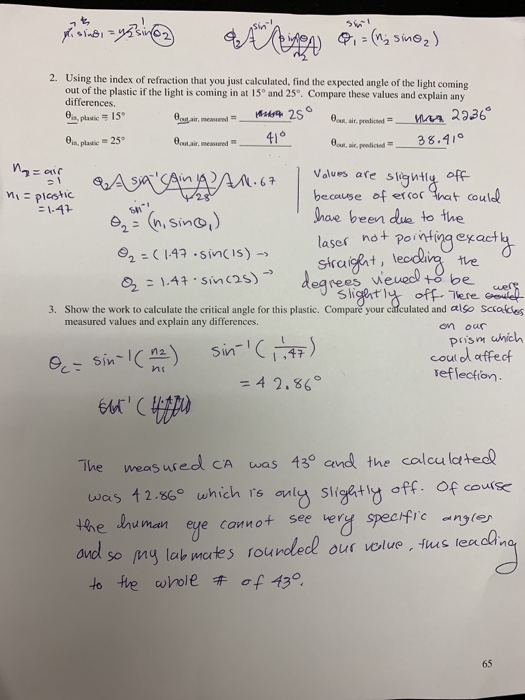 n₁ sinθ₁ = n₂ sinθ₂
sin⁻¹
θ₁ = (n₂ sinθ₂)
2. Using the index of refraction that you just calculated, find the expected angle of the light coming
out of the plastic if the light is coming in at 15° and 25°. Compare these values and explain any
differences.
θin, plastic = 15° θout,air, measured = 25° θout, air, predicted = 22.36°
θin, plastic = 25° θout,air, measured = 41° θout, air, predicted = 38.41°
n₂ = air
= 1
n₁ = plastic
= 1.47
sin⁻¹
θ₂ = (n₁ sinθ₁)
θ₂ = (1.47 · sin(15) →
θ₂ = 1.47 · sin(25) →
Values are slightly off
because of error that could
have been due to the
laser not pointing exactly
straight, leading the
degrees viewed to be
slightly off. There were
also scratches
on our
prism which
could affect
reflection.
3. Show the work to calculate the critical angle for this plastic. Compare your calculated and
measured values and explain any differences.
θc = sin⁻¹ (n₂/n₁) sin⁻¹ (1/1.47)
= 42.86°
The measured CA was 43° and the calculated
was 42.86° which is only slightly off. Of course
the human eye cannot see very specific angles
and so my lab mates rounded our value, thus leading
to the whole # of 43°.
65